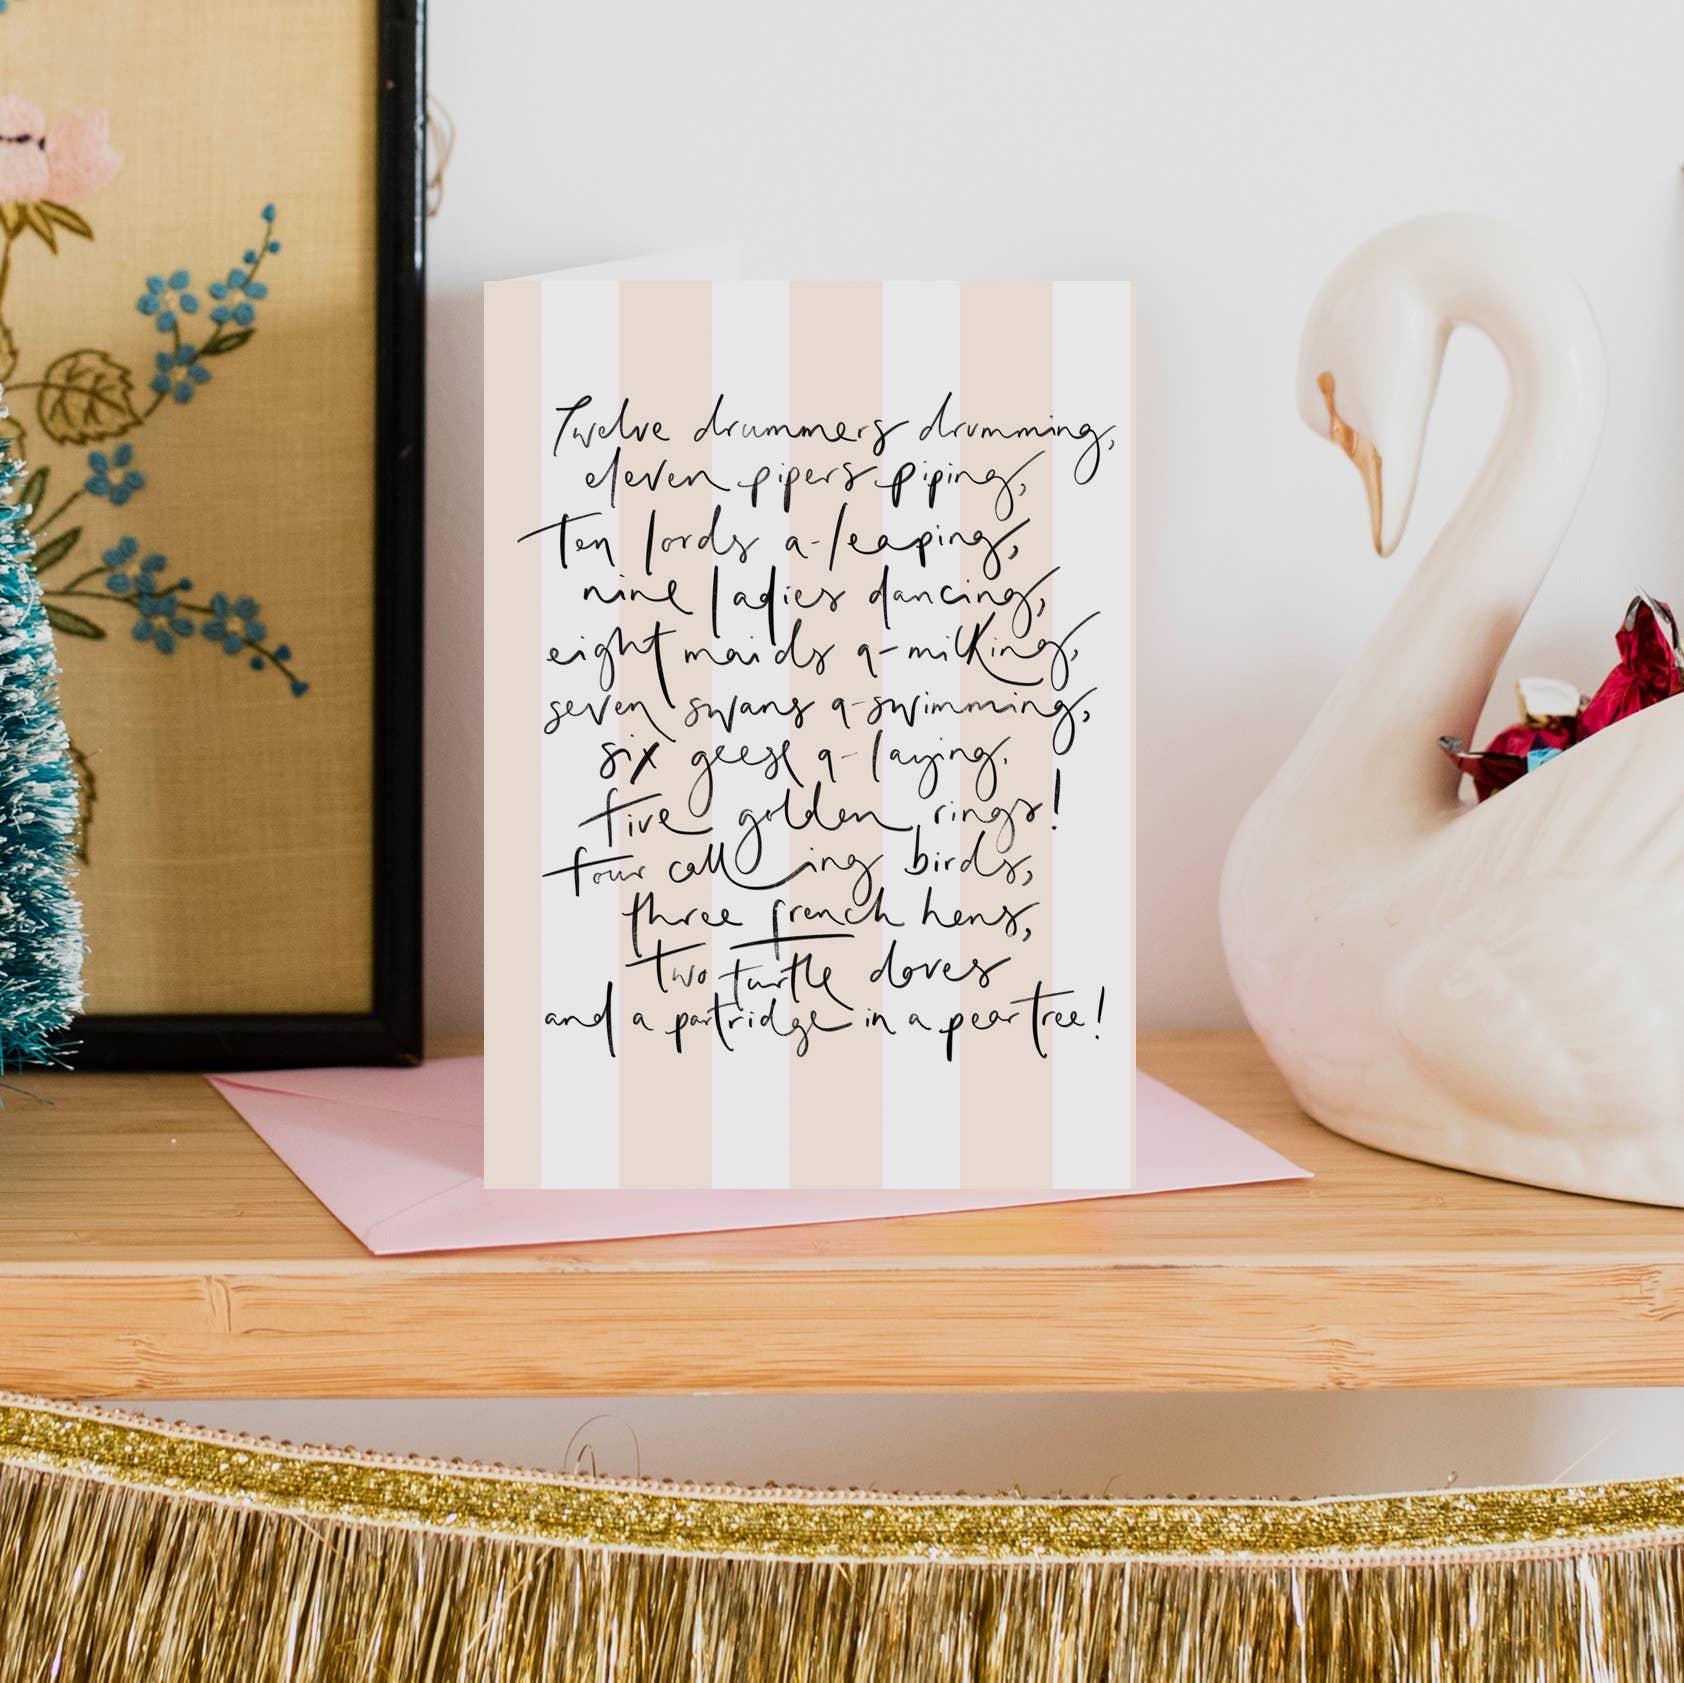 Twelve drummers drumming,
eleven pipers piping,
ten lords a-leaping,
nine ladies dancing,
eight maids a-milking,
seven swans a-swimming,
six geese a-laying.
five golden rings!
four calling birds,
three french hens,
two turtle doves
and a partridge in a pear tree!